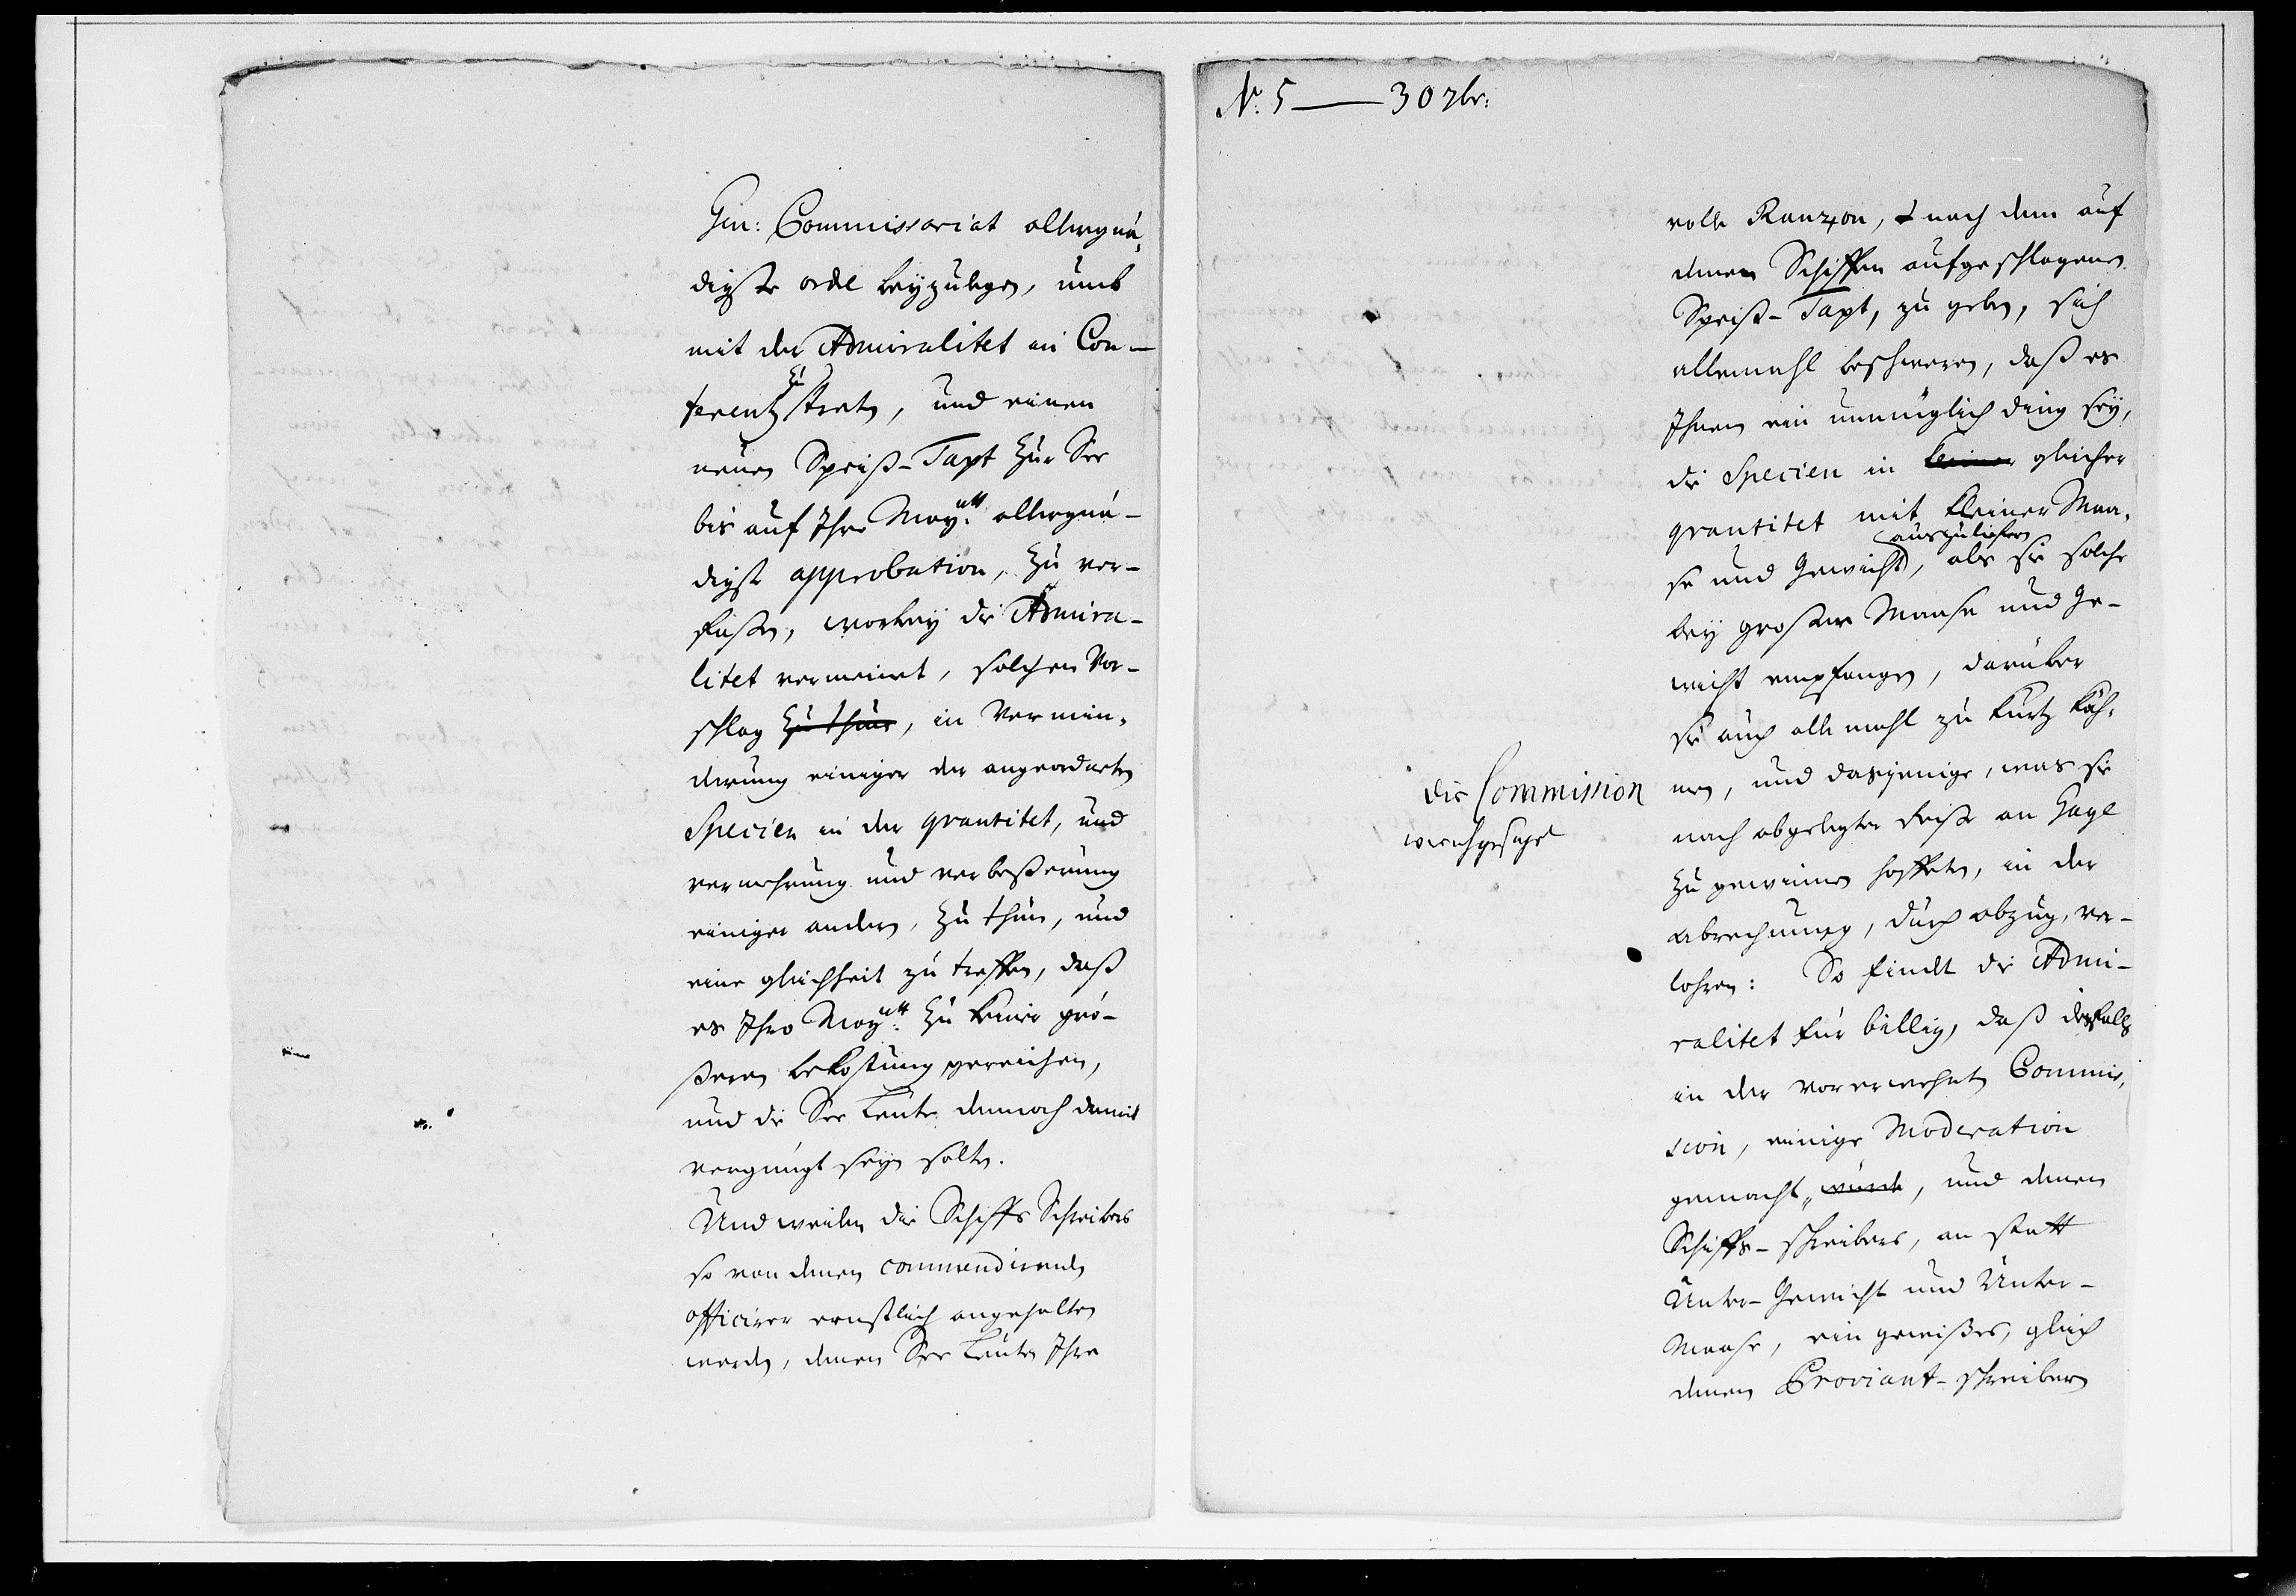 Gen: Commissariat allergnä-
digste ordre beyzulegen, umb
mit der Admiralitet in Con-
ferentz zu treten, und einen
neuen Speiß-Taxt zur See
bis auf Ihre Mayᵗᵗ: allergnä-
digste approbation, zu ver-
faßen, worbey die Admira-
litet vermeinet, solchen Vor-
schlag zu thun, in Vermin-
derung einiger der angeordneten
Specien in der quantitet, und
vermehrung und verbeßerung
einiger andern, zu thun, und
eine gleichheit zu treffen, daß
es Ihro Mayᵗᵗ: zu keiner grö-
ßeren bekostung gereichen,
und die See Leute dennoch damit
vergnügt seyn solten.
Und weilen die Schiffs Schreibers
so von denen commendirenden
officirer ernstlich angehalten
werden, denen See Leuten Ihre
No. 5 — 30 7br:
volle Ranzon, nach dem auf
denen Schiffen aufgeschlagenen
Speiß-Taxt, zu geben, sich
allemahl beschweren, daß es
Ihnen ein unmüglich ding sey,
die Specien in keiner gleicher
quantitet mit kleiner Maa-
se und Gewicht auszuliefern, als sie solche
bey großer Maase und Ge-
wicht empfangen, darüber
sie auch alle mahl zu kurtz käh-
men, und dasjenige, was sie
nach abgelegter Reise an Gage
zu gewinnen hoffeten, in der
abrechnung, durch abzug, ver-
lohren: So findt die Admi-
ralitet für billig, daß desfalls
in der vorerwehnten Commis-
sion, einige Moderation
gemacht würde, und denen
Schiffs-schreibers, an statt
Unter-Gewicht und Unter-
Maase, ein gewißes, gleich
denen Proviant-schreibern
die Commission